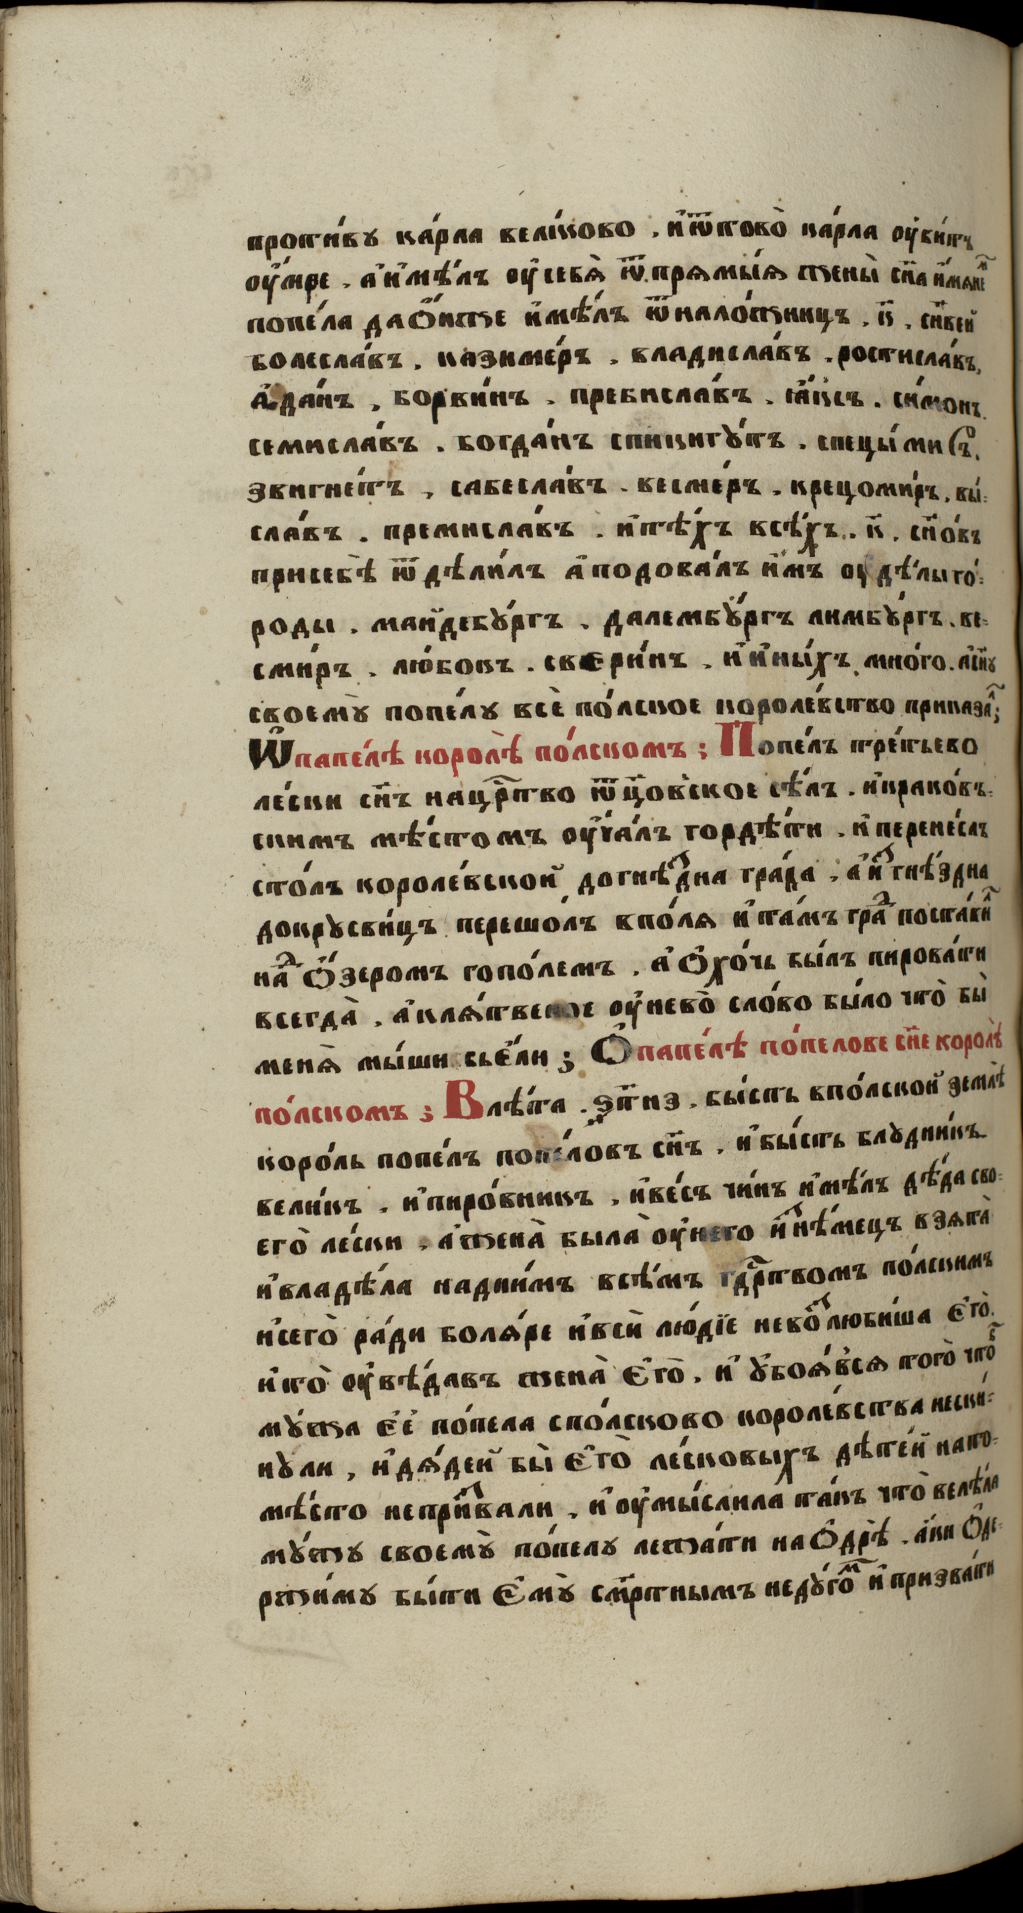 проти́вꙋ ка́рла вели́ково . и҆ ѿтово̀ ка́рла ᲂу҆би́тъ
ᲂу҆́мре . а҆ и҆мѣ́лъ ᲂу҆ себѧ̀ ѿ прѧмы́ѧ жены̀ сн҃а и҆́мѧнеⷨ
попе́ла да ѻ҆́нже и҆мѣ́лъ ѿ нало́жницъ . к҃ . сн҃вей
болесла́въ . казиме́ръ . владисла́въ . ростисла́въ,
а҆да́нъ , борви́нъ . пребисла́въ . ꙗ҆́ксъ . си́монъ
семисла́въ . богда́нъ спицигꙋ́тъ . спецы́миръ.
звигне́тъ , сабесла́въ . весме́ръ . крецоми́ръ . вы-
сла́въ . премисла́въ . и҆ тѣ́хъ всѣ́хъ . к҃ . сн҃о́въ
присебѣ̀ ѿдѣли́лъ а҆ подова́лъ и҆̀мъ ᲂудѣ́лы го-
роды . майдебꙋ́ргъ . далембꙋ́ргъ лимбꙋ́ргъ . ве-
сми́ръ . лю́бокъ . свери́нъ . и҆ и҆ны́хъ мно́го . а҆ сн҃ꙋ
своемꙋ̀ попе́лꙋ всѐ по́лское короле́вство приказаⷧ҇;
Ѡ҆ папе́лѣ королѣ̀ по́лскомъ ; Попе́лъ тре́тьево
ле́ски сн҃ъ на црⷭ҇тво ѿцо́вское сѣ́лъ . и҆ крако́въ-
скимъ мѣ́стомъ ᲂу҆ча́лъ гордѣ́ти . и҆ перене́слъ
сто́лъ короле́вской до гнѣⷥдна гра́да , а҆ иⷥ гнѣ́здна
до крꙋсви́цъ перешо́лъ в по́лѧ и҆ та́мъ граⷣ поста́виⷧ
наⷣ ѻ҆́зеромъ гопо́лемъ . а҆ ѻ҆хо́чь бы́лъ пирова́ти
всегда̀ . а҆ клѧ́твеное ᲂу҆ нево̀ сло́во бы́ло что̀ бы̀
менѧ̀ мы́ши сьє́ли ; Ѻ҆ папе́лѣ по́пелове сн҃е королѣ̀
по́лскомъ ; В лѣ́та . ѕ҂тиз . бы́сть в по́лской землѣ̀
коро́ль попе́лъ попе́ловъ сн҃ъ . и҆ бы́сть блꙋдни́къ
вели́къ . и҆ пиро́вникъ . и҆ ве́съ чи́нъ и҆мѣ́лъ дѣ́да сво-
его̀ ле́ски . а҆ жена̀ была̀ ᲂу҆ него иⷥ нѣ́мецъ взѧта̀
и҆ владѣ́ла над ни́мъ всѣ́мъ гдⷭ҇рствомъ по́лскимъ
и҆ сего̀ ра́ди болѧ́ре и҆ всѝ лю́дїе не воⷥлюби́ша є҆го̀.
и҆ то̀ ᲂу҆вѣ́давъ жена̀ є҆го̀ . и҆ ᲂу҆боѧ́всѧ того̀ чтоⷠ
мꙋ́жа є҆є҆̀ по́пела с по́лсково короле́вства не ски́-
нꙋли , и҆ дѧ́дей бы̀ є҆го̀ ле́сковыхъ дѣте́й на то-
мѣ́сто не приⷥвали . и҆ ᲂу҆мы́слила та́къ что̀ велѣ́ла
мꙋ́жꙋ своемꙋ̀ по́пелꙋ лежа́ти на ѻ҆дрѣ̀ . а҆́ки ѻ҆де-
ржи́мꙋ бы́ти є҆мꙋ̀ смⷬ҇тнымъ недꙋ́гоⷨ и҆ призва́ти